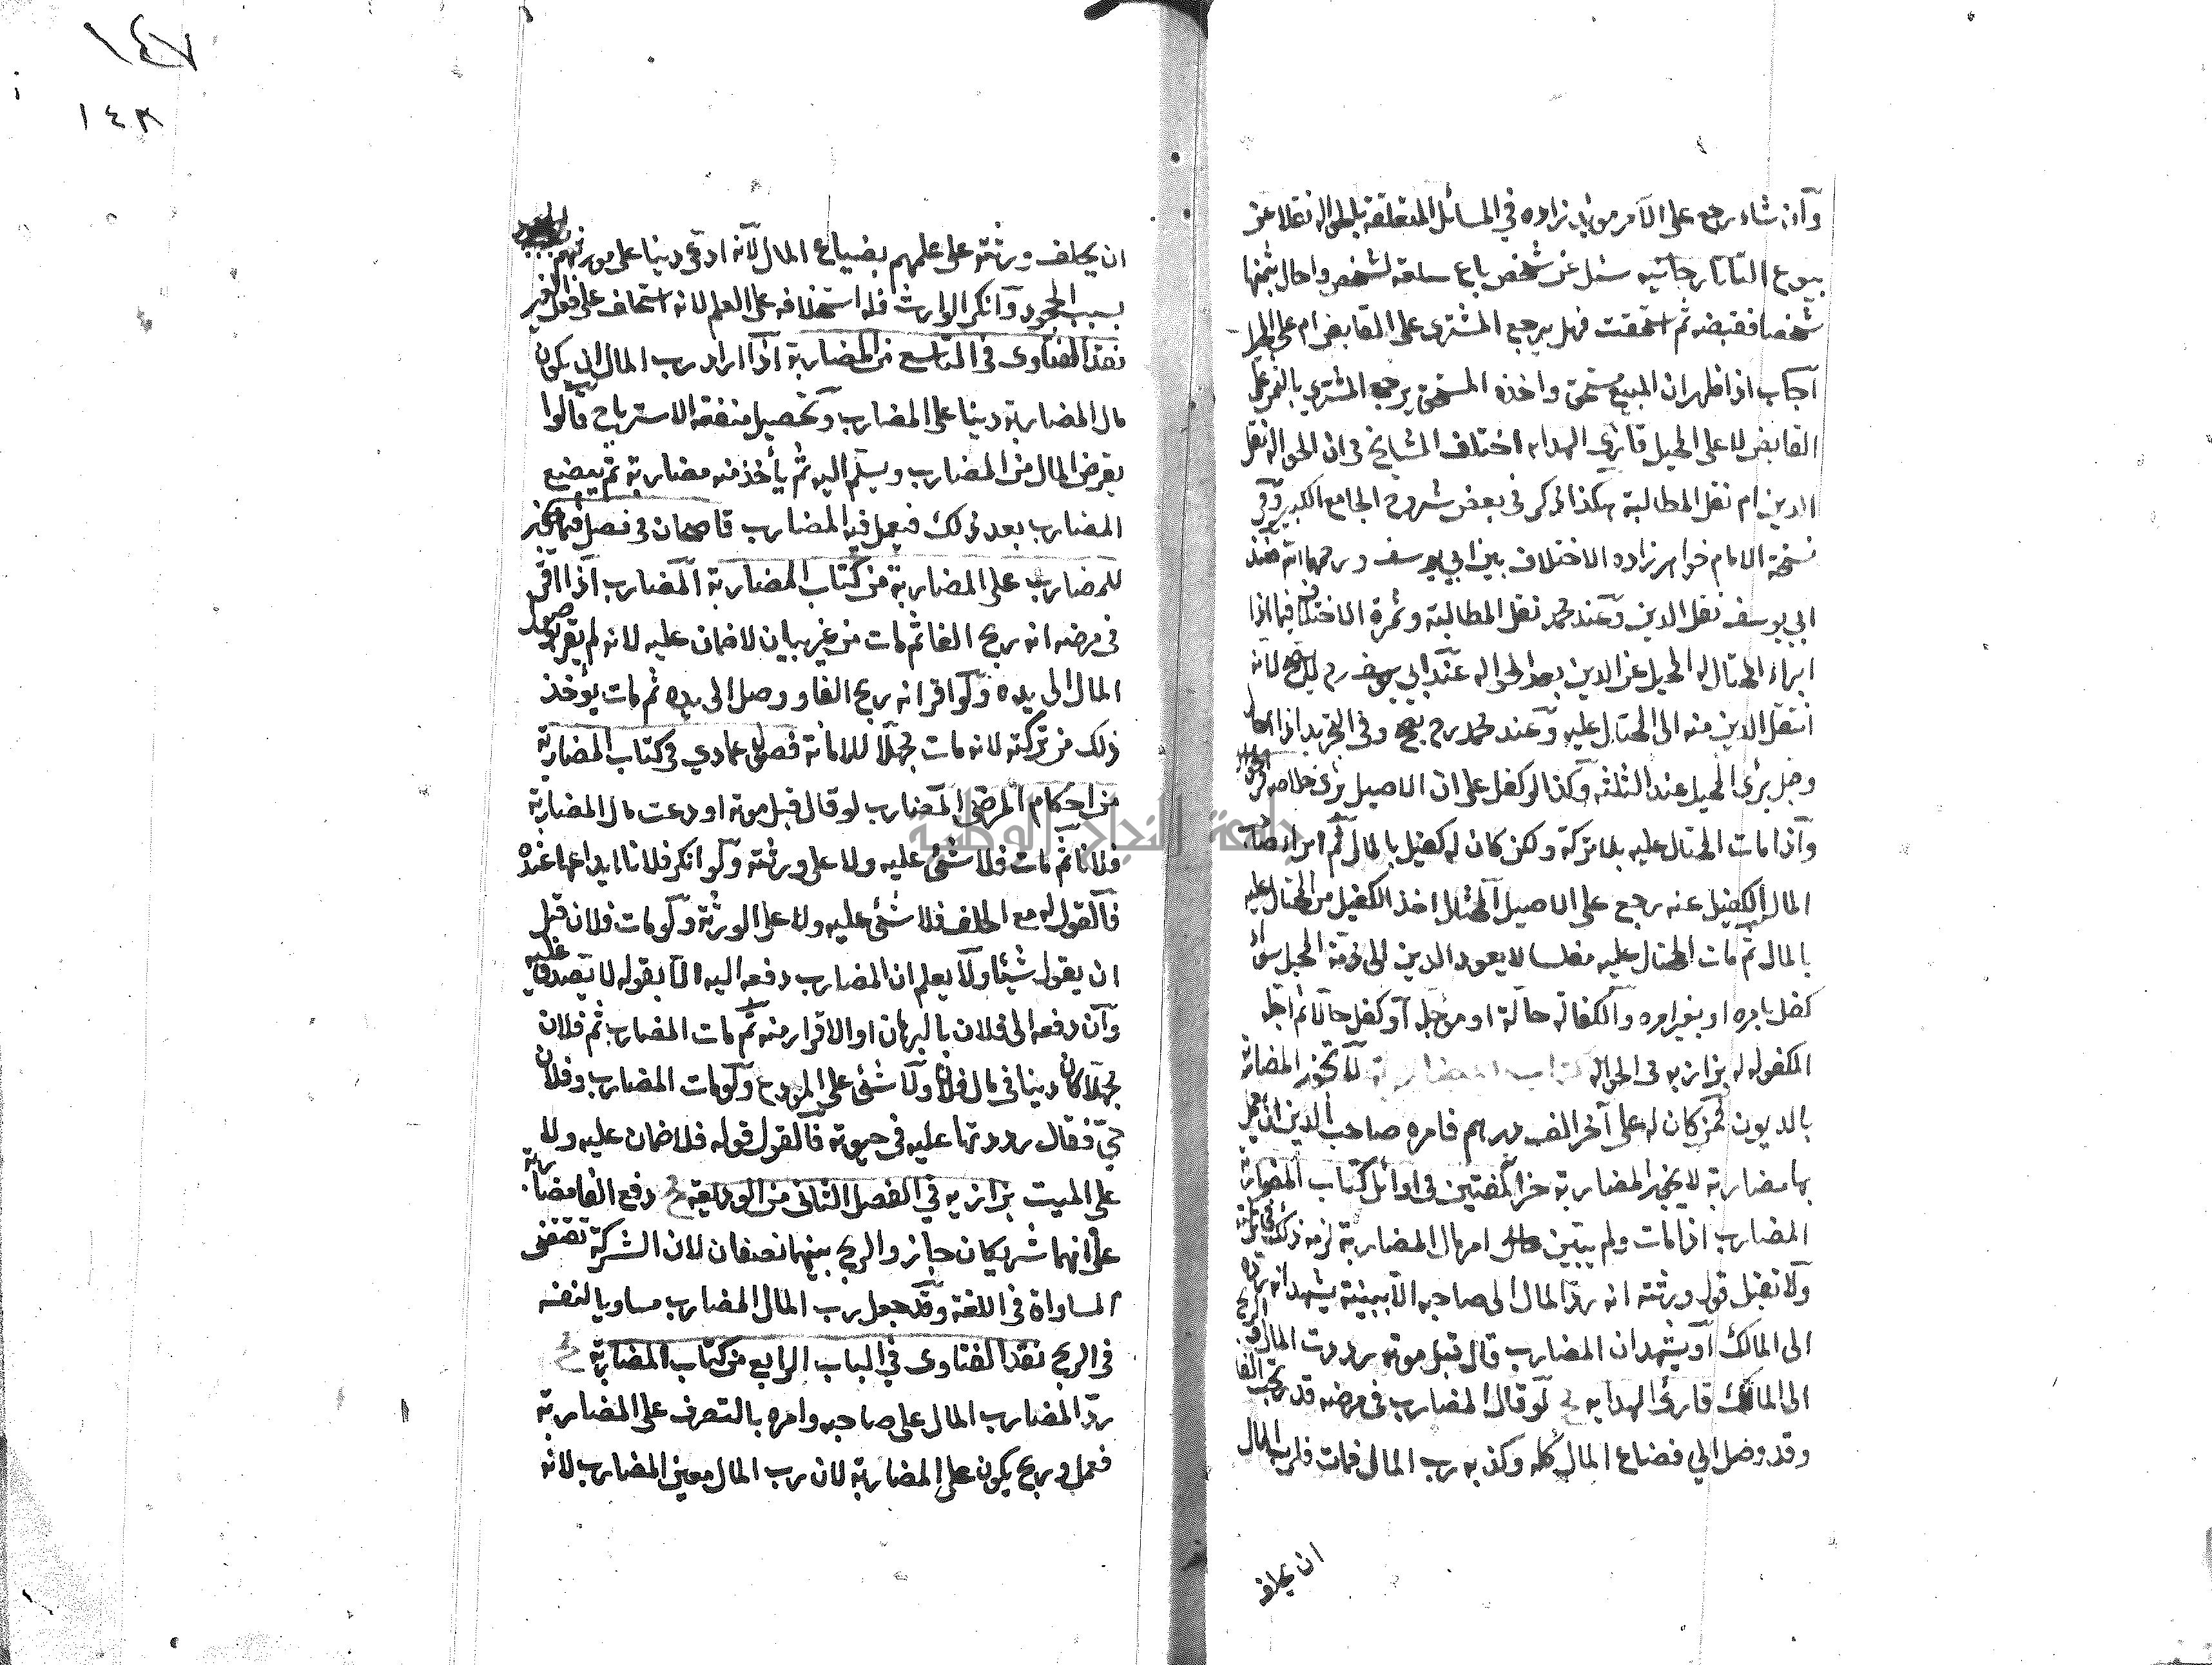 وان شاء رجع على الآمر مؤيد زاده في المسائل المتعلقة بالحواله نقلا عن
بيوع التاتارخانيه سئل عن شخص باع سلعة لشخص واحال بثمنها
شخصا فقبضه ثم استحقت فهل يرجع المشترى على القابض ام على المحيل
اجاب اذا ظهر ان المبيع مستحق واخذه المستحق يرجع المشتري بالثمن على
القابض لا على المحيل قارئ الهدايه اختلف المشايخ في ان الحواله نقل
الدين ام نقل المطالبة هكذا ذكر في بعض شروح الجامع الكبير وفي
نسخة الامام خواهرزاده الاختلاف بين ابي يوسف و رحمهما الله فعند
ابي يوسف نقل الدين وعند محمد نقل المطالبة وثمرة الاختلاف فيما اذا
ابراء المحتال له المحيل عن الدين بعد الحواله عند ابي يوسف رح لا يصح لانه
انتقل الدين منه الى المحتال عليه وعند محمد رح يصح وفي التجريد اذا احال
وقبل برئ المحيل عند الثلثه وكذا لو كفل على ان الاصيل برئ خلاصه في الحواله
واذا مات المحتال عليه بلا تركة ولكن كان له كفيل بالمال ثم ابراء صاحب
المال الكفيل عنه رجع على الاصيل المحتال اخذ الكفيل من المحتال عليه
بالمال ثم مات المحتال عليه مفلسا لا يعود الدين الى ذمة المحيل سواء
كفل بامره او بغير امره والكفالة حالة او مؤجلة او كفل حالا ثم اجله
المكفول له بزازيه في الحواله كتاب المضاربة لا تجوز المضاربة
بالديون كمن كان له على آخر الف درهم فامره صاحب الدين ان يعمل
بها مضاربة لا يجوز المضاربة خزانة المفتين في اوائل كتاب المضاربة
المضارب اذا مات ولم يتبين حال امر مال المضاربة لزمه ذلك في تركته
ولا تقبل قول ورثته انه رد المال الى صاحبه الا ببينة يشهد انه رده
الى المالك او يشهد ان المضارب قال قبل موته رددت المال والربح
الى المالك قارئ الهدايه لو قال المضارب في مرضه قد ربحت الفا
وقد وصل الي فضاع المال كله وكذبه رب المال فمات فلرب المال
ان يحلف
١٤٧
١٤٣
ان يحلف ورثته على علمهم بضياع المال لانه ادعى دينا على مورثهم
بسبب الجحود وانكر الوارث فله استحلافه على العلم لانه استحلاف على فعل الغير
نقد الفتاوى في التاسع من المضاربة اذا اراد رب المال ان يكون
مال المضاربة دينا على المضارب وتحصيل منفعة الاسترباح قالوا
يقرض المال من المضارب ويسلم اليه ثم يأخذ منه مضاربة ثم يبضع
المضارب بعد ذلك فيعمل فيه المضارب قاضيخان في فصل فيما يجوز
للمضارب على المضاربة من كتاب المضاربة المضارب اذا اقر
في مرضه انه ربح الفا ثم مات من غير بيان لا ضمان عليه لانه لم يقر بوصول
المال الى يده ولو اقر انه ربح الفا ووصل الى يده ثم مات يؤخذ
ذلك من تركته لانه مات مجهلا للامانة فصول عمادي في كتاب المضاربة
من احكام المرضى المضارب لو قال قبل موته اودعت مال المضاربة
فلانا ثم مات فلا شئ عليه ولا على ورثته ولو انكر فلانا ايداعها عنده
فالقول له مع الحلف فلا شئ عليه ولا على الورثة ولو مات فلان قبل
ان يقول شيئا ولا يعلم ان المضارب دفعه اليه الا بقوله لا يصدق عليه
وان دفعه الى فلان بالبرهان او الاقرار منه ثم مات المضارب ثم فلان
مجهلا كان دينا في مال فلان ولا شئ على المودع ولو مات المضارب وفلان
حي فقال رددتها عليه في حيوته فالقول قوله فلا ضمان عليه ولا
على الميت بزازيه في الفصل الثاني من الوديعة دفع الفا مضاربة
على انهما شريكان جاز والربح بينهما نصفان لان الشركة تقتضى
المساواة في اللغة وقد جعل رب المال المضارب مساويا لنفسه
في الربح نقد الفتاوى في الباب الرابع من كتاب المضاربة
رد المضارب المال على صاحبه وامره بالتصرف على المضاربة
فعمل وربح يكون على المضاربة لان رب المال معين المضارب لانه
جامعة النجاح الوطنية